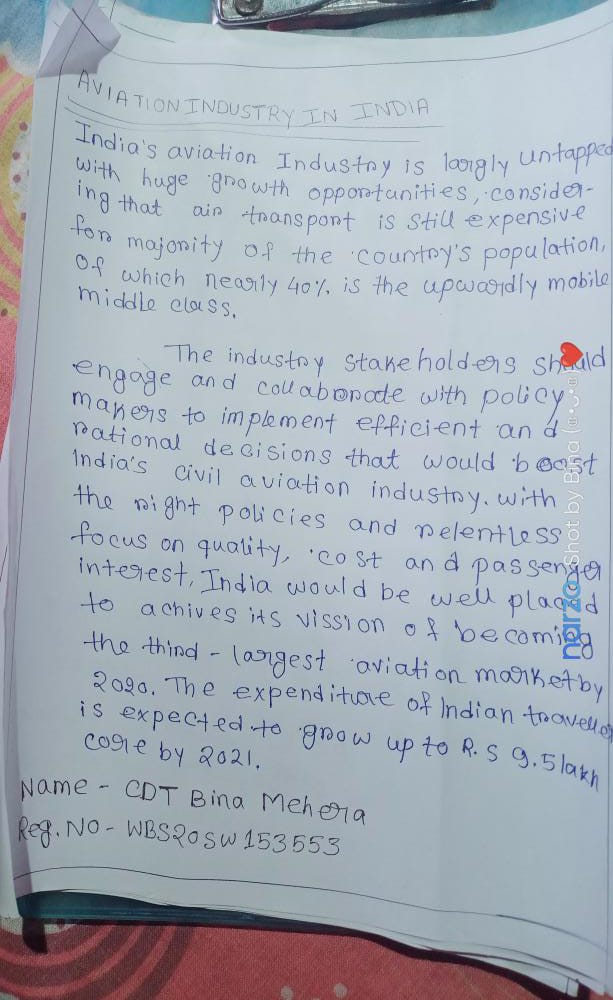 AVIATION INDUSTRY IN INDIA
India's aviation Industry is largly untapped
with huge growth opportunities, consider-
ing that air transport is still expensive
for majority of the country's population,
of which nearly 40% is the upwardly mobile
middle class.
The industry stakeholders should
engage and collaborate with policy
makers to implement efficient and
rational decisions that would boost
India's civil aviation industry. with
the right policies and relentless
focus on quality, cost and passenger
interest, India would be well placed
to achives its vission of becoming
the third-largest aviation market by
2020. The expenditure of Indian traveller
is expected to grow up to R.S 9.5 lakh
core by 2021.
Name - CDT Bina Mehera
Reg. NO - WBS20SW153553
narzo Shot by Bina